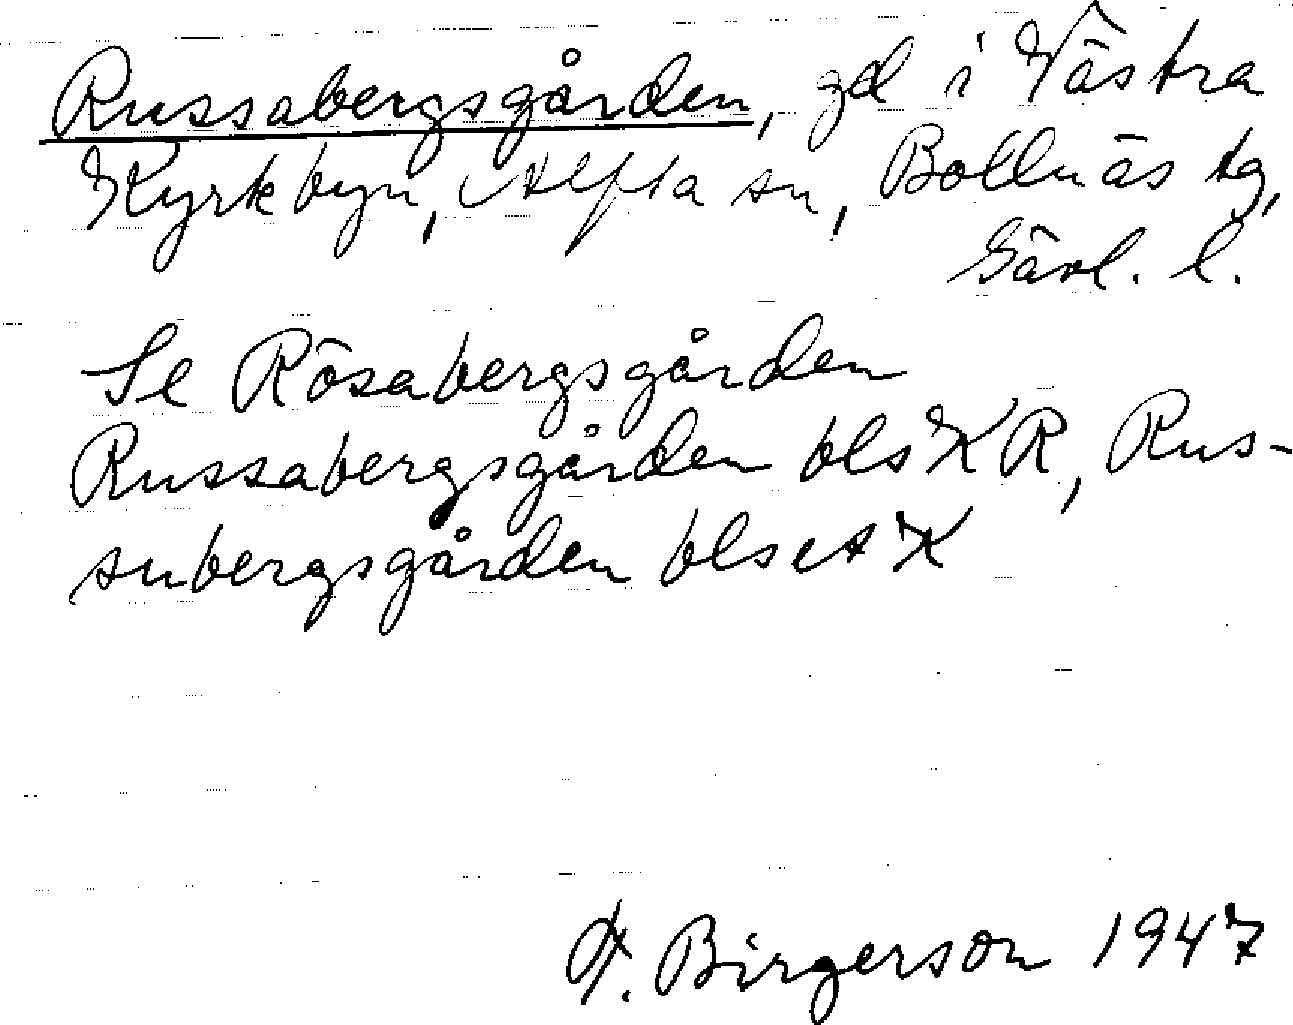 Russabergsgården, gd i Västra
Kyrkbyn, Alfta sn, Bollnäs tg,
Gävl. l.
Se Rösabergsgården
Russabergsgården bls KR, Rus-
subergsgården blset K
F. Birgerson 1947